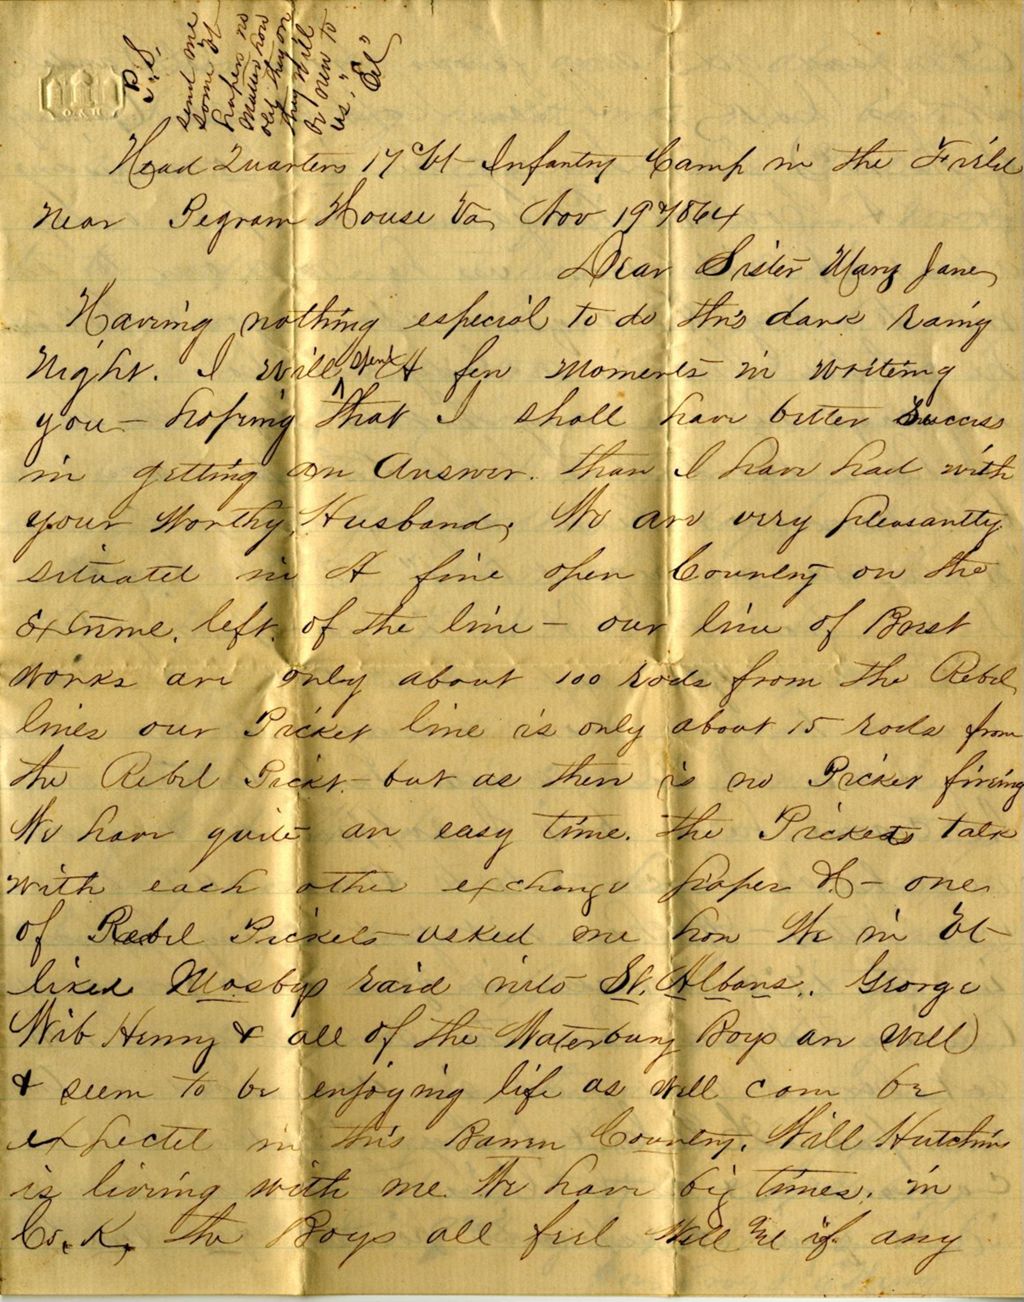 P.S.
send me
some Vt
papers no
Matter how
old they are
they will
be new to
us, "Ed"
Head Quarters 17th Vt Infantry Camp in the Field
near Pegram House Va, Nov 19th 1864
Dear Sister Mary Jane,
Having nothing especial to do this dark rainy
Night. I will spend A few moments in writing
you - hoping that I shall have better success
in getting an Answer. than I have had with
your Worthy, Husband, We are very pleasantly
situated in A fine open Country on the
Extreme. left. of the line - our line of Brest
works are only about 100 rods from the Rebel,
lines our Picket line is only about 15 rods from
the Rebel Picket - but as there is no Picket firing
We have quite an easy time. the Pickets talk
with each other exchange papers &c - one
of Rebel Pickets asked me how We in Vt
liked Mosbys raid into St. Albans. George
Wib Henry & all of the Waterbury Boys are well
& seem to be enjoying life as well com be
expected in this Barren Country. Will Hutchins
is living with me. We have big times. in
Co. K, the Boys all feel Well if any